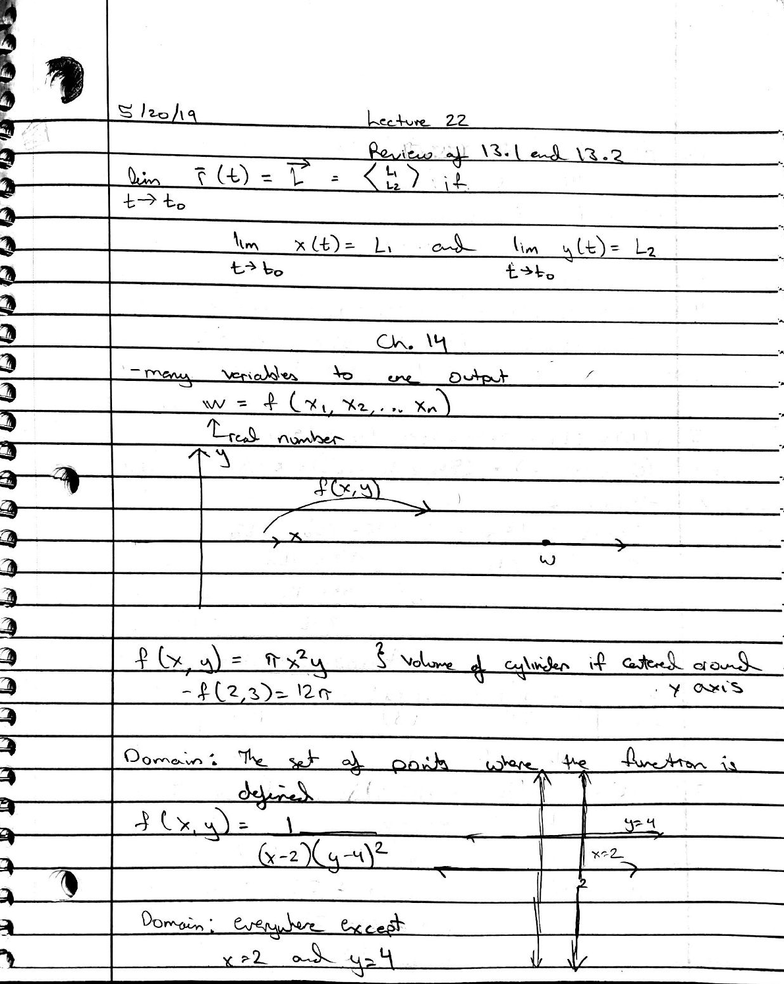 5/20/19 Lecture 22
Review of 13.1 and 13.2
lim r̄(t) = L⃗ = ⟨L₁ L₂⟩ if
t→t₀
lim x(t) = L₁ and lim y(t) = L₂
t→t₀ t→t₀
Ch. 14
- many variables to one output
w = f(x₁, x₂, ... xₙ)
real number
y
f(x,y)
x
w
f(x,y) = πx²y } Volume of cylinder if centered around
- f(2,3) = 12π y axis
Domain: The set of points where the function is
defined
f(x,y) = 1/((x-2)(y-4)²
y=4
x=2
2
Domain: everywhere except
x=2 and y=4